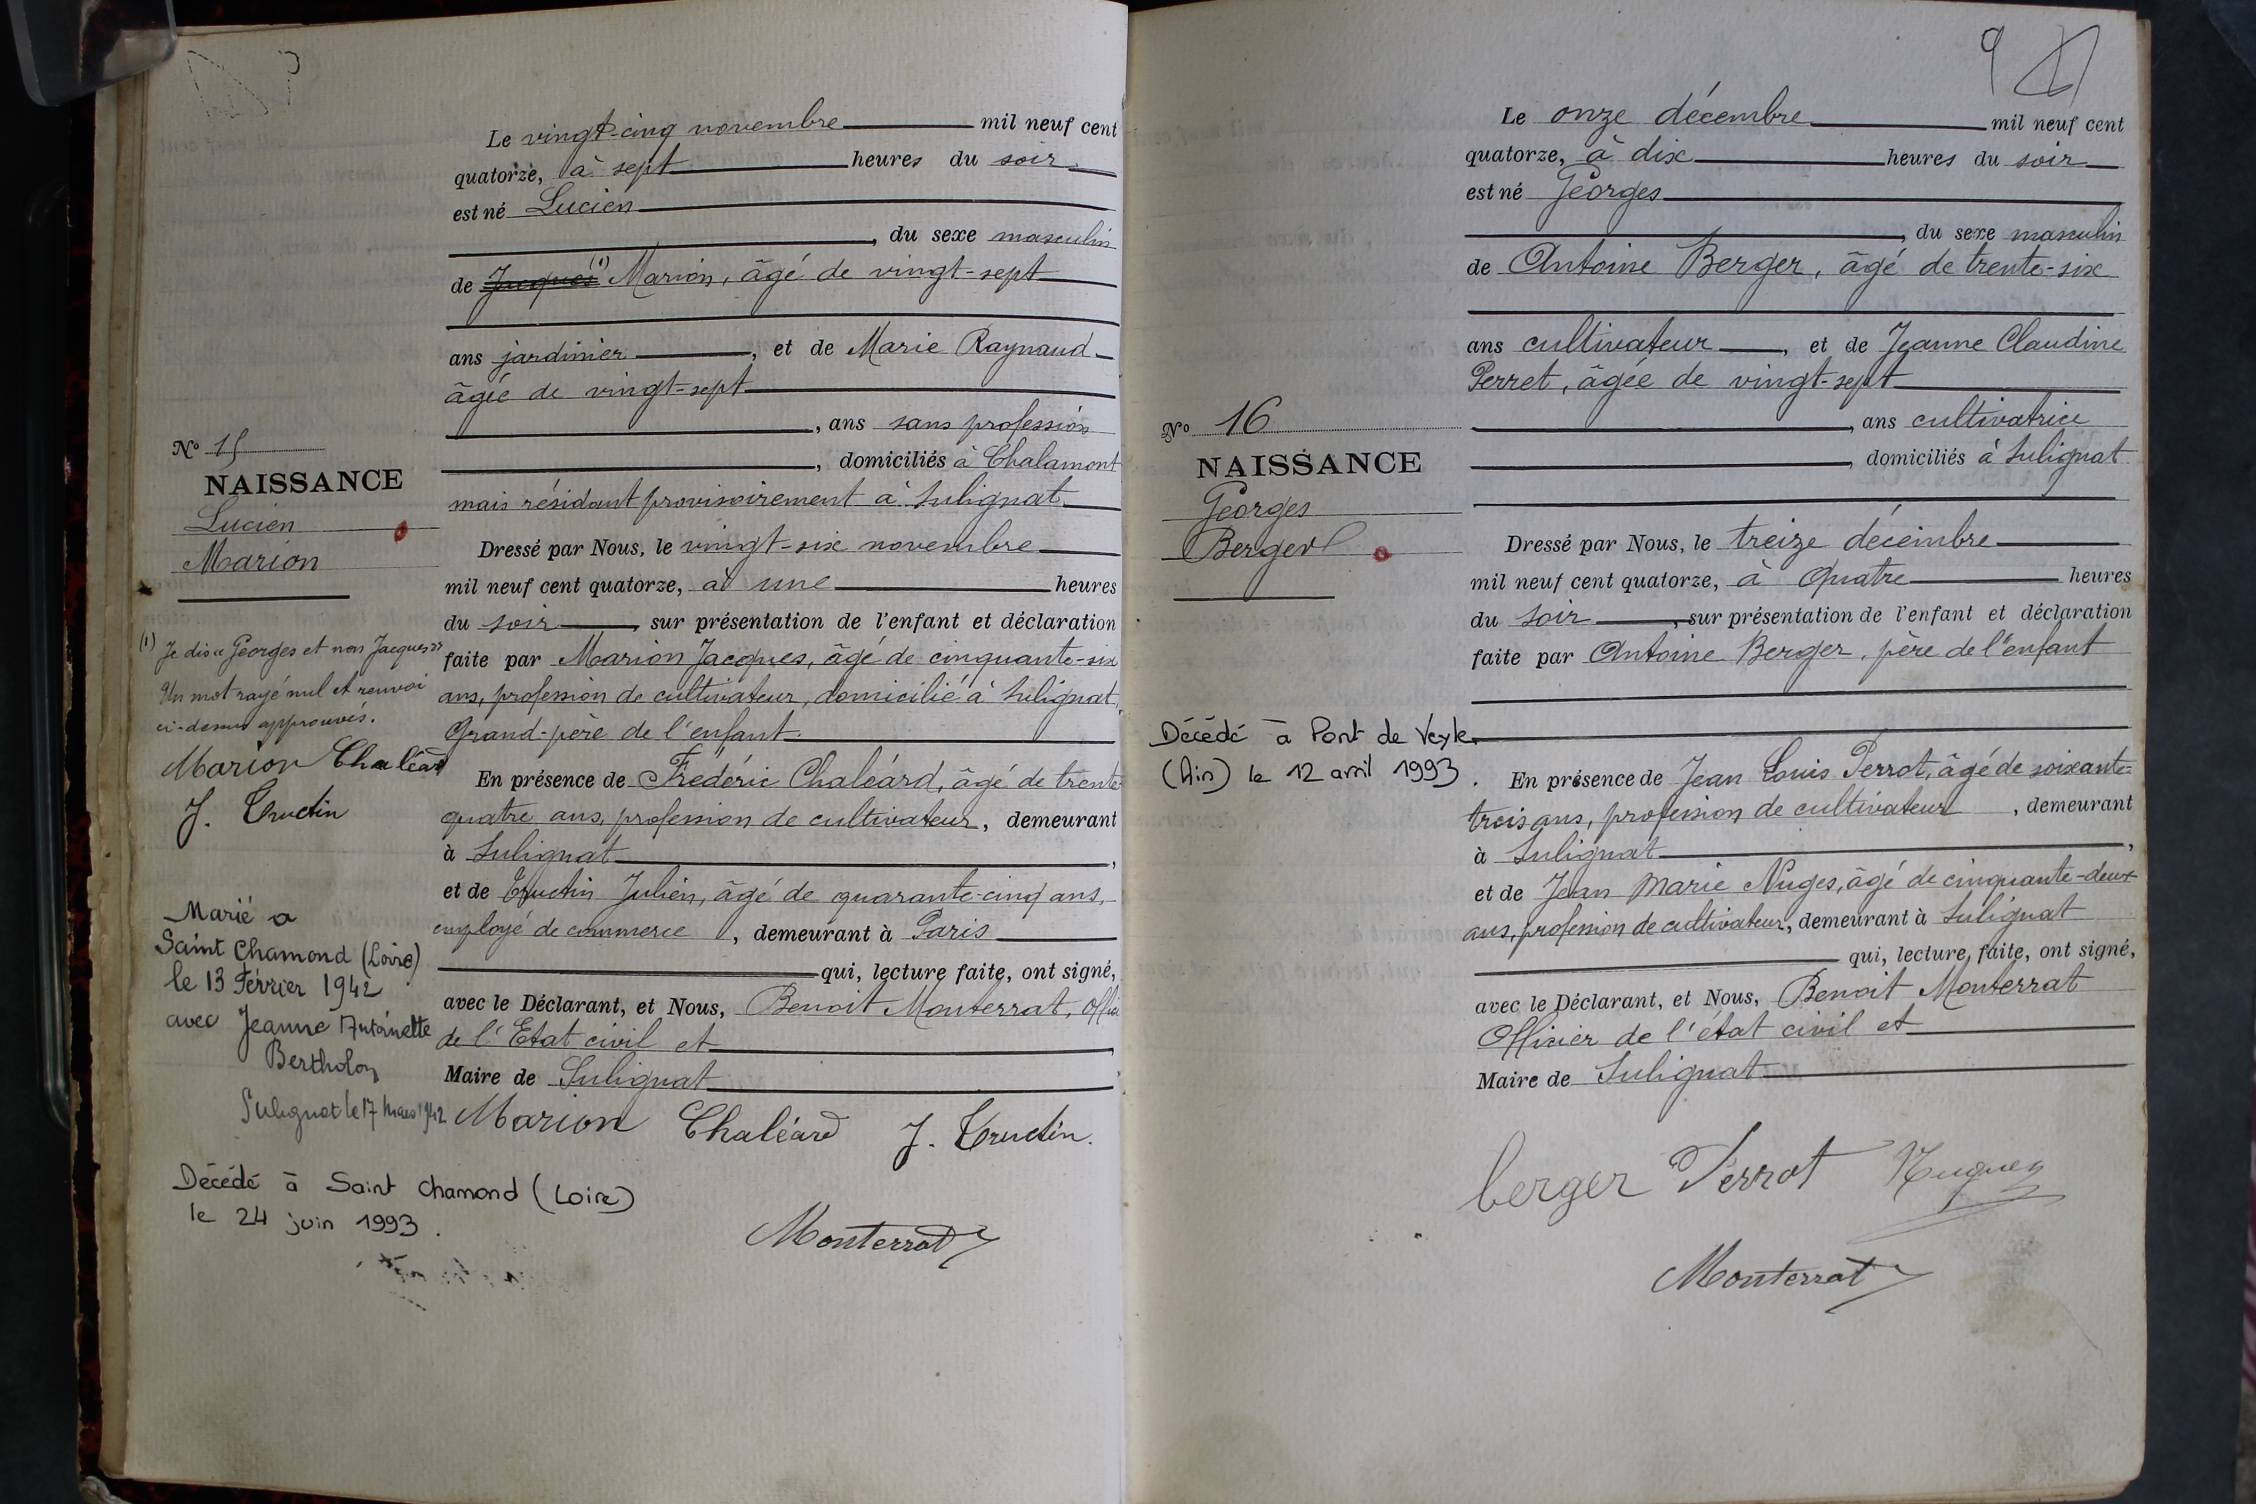 Le vingt-cinq novembre mil neuf cent
quatorze, à sept heures du soir
est né Lucien
, du sexe masculin
de Jacques (1) Marion, âgé de vingt-sept
ans jardinier, et de Marie Raynaud
âgée de vingt-sept
, ans sans profession
, domiciliés à Chalamont
mais résidant provisoirement à Sulignat
Dressé par Nous, le vingt-six novembre
mil neuf cent quatorze, à une heures
du soir, sur présentation de l'enfant et déclaration
faite par Marion Jacques, âgé de cinquante-six
ans, profession de cultivateur, domicilié à Sulignat,
Grand-père de l'enfant.
En présence de Frédéric Chaléard, âgé de trente
quatre ans, profession de cultivateur, demeurant
à Sulignat,
et de Tructin Julien, âgé de quarante-cinq ans,
employé de commerce, demeurant à Paris
qui, lecture faite, ont signé,
avec le Déclarant, et Nous, Benoit Monterrat, Offici
de l'Etat civil et
Maire de Sulignat
Marion Chaléard J. Tructin.
Monterrat
No 15
NAISSANCE
Lucien
Marion
(1) Je dis "Georges et non Jacques"
Un mot rayé nul et renvoi
ci-dessus approuvés.
Marion Chaléard
J. Tructin
Marié a
Saint Chamond (Loire)
le 13 Février 1942
avec Jeanne Antoinette
Bertholon
Sulignat le 17 Mars 1942
Décédé à Saint Chamond (Loire)
le 24 juin 1993.
9
Le onze décembre mil neuf cent
quatorze, à dix heures du soir
est né Georges
, du sexe masculin
de Antoine Berger, âgé de trente-six
ans cultivateur, et de Jeanne Claudine
Perret, âgée de vingt-sept
, ans cultivatrice
, domiciliés à Sulignat
Dressé par Nous, le treize décembre
mil neuf cent quatorze, à Quatre heures
du soir, sur présentation de l'enfant et déclaration
faite par Antoine Berger, père de l'enfant
En présence de Jean Louis Perrot, âgé de soixante-
trois ans, profession de cultivateur, demeurant
à Sulignat,
et de Jean Marie Nuges, âgé de cinquante-deux
ans, profession de cultivateur, demeurant à Sulignat
qui, lecture faite, ont signé,
avec le Déclarant, et Nous, Benoit Monterrat
Officier de l'état civil et
Maire de Sulignat
berger Perrot
Monterrat
No 16
NAISSANCE
Georges
Berger
Décédé à Pont de Veyle
(Ain) le 12 avril 1993.